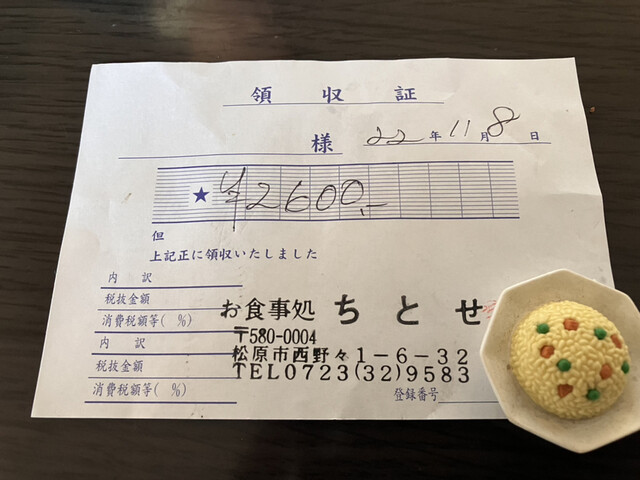 領収証
様 22年11月8日
★ ¥2600.-
但
上記正に領収いたしました
内訳
税抜金額
消費税額等( %)
内訳
税抜金額
消費税額等( %)
お食事処 ちとせ
〒580-0004
松原市西野々1-6-32
TEL0723(32)9583
登録番号